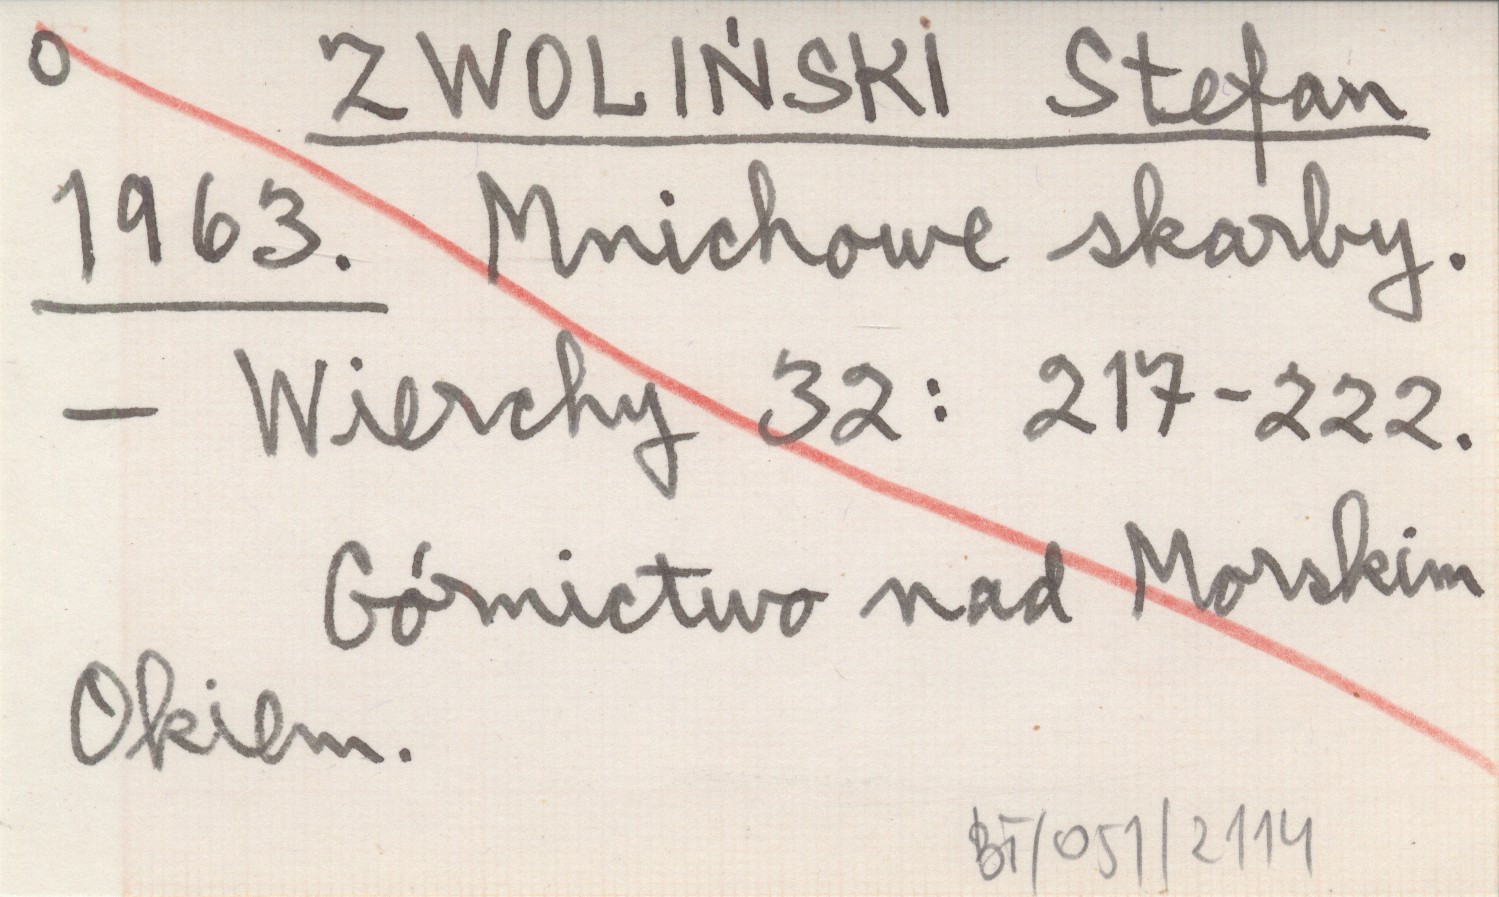 o ZWOLIŃSKI Stefan
1963. Mnichowe skarby.
— Wierchy 32: 217-222.
Górnictwo nad Morskim
Okiem.
BT/051/2114